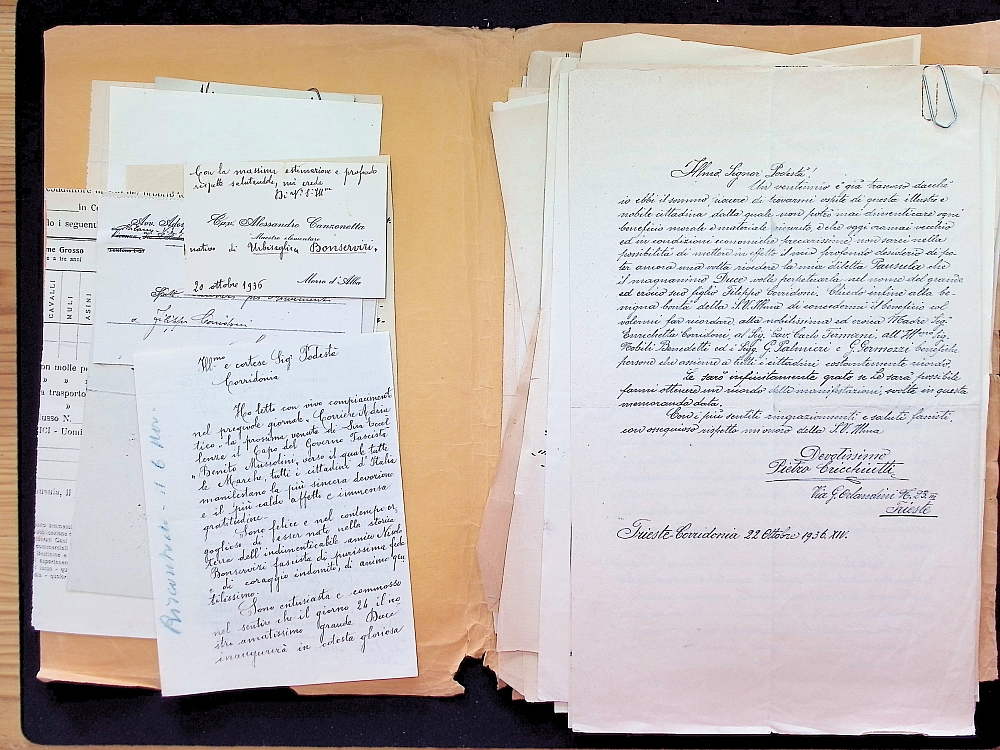 Con la massima estimazione e profondo
rispetto salutandola, mi creda
Di V. S. Ill.ma
Cav. Alessandro Canzonetta
Maestro elementare
nativo di Urbisaglia Bonservizi,
20 ottobre 1936
Morro d'Alba
a Filippo Corridoni
in Co
lo i seguent
me Grosso
e a tre anni
CAVALLI
MULI
ASINI
on molle p
trasporto
usso N.
ICI - Uomi
Riscontrato - il 6 Nov.
Ill.mo e cortese Sig. Podestà
Corridonia
Ho letto con vivo compiacimento
nel pregevole giornale "Corriere Adria
tico" la prossima venuta di Sua Eccel
lenza il Capo del Governo Fascista
"Benito Mussolini, verso il quale tutte
le Marche, tutti i cittadini d'Italia
manifestano la più sincera devozione
e il più caldo affetto e immensa
gratitudine.
Sono felice e nel contempo or
goglioso di esser nato nella storica
terra dell'indimenticabile amico Nicola
Bonservizi fascista di purissima fede
e di coraggio indomito, di animo gen
tilissimo.
Sono entusiasta e commosso
nel sentire che il giorno 26, il no
stro amatissimo grande Duce
inaugurerà in codesta gloriosa
Ill.mo Signor Podestà!
Un ventennio è già trascorso dacchè
io ebbi il sommo onore di trovarmi ospite di questa illustre e
nobile cittadina, dalla quale non potrò mai dimenticare ogni
beneficio morale e materiale ricevuto, è che oggi oramai vecchio
ed in condizioni economiche precarissime non sarei nella
possibilità di mettere in effetto il mio profondo desiderio di po-
ter ancora una volta rivedere la mia diletta Pausula che
il magnanimo Duce volle perpetuarla nel nome del grande
ed eroico suo figlio Filippo Corridoni. Chiedo infine alla be-
nigna bontà della S.V. Ill.ma di concedermi il beneficio di
volermi far ricordare alla nobilissima ed eroica Madre Sig.
Enrichetta Corridoni, al Sig. Cav. Carlo Firmani, all'Ill.mo Sig.
Nobili Benedetti ed i Sigg. G. Palmieri e G. Germozzi benefiche
persone che assieme a tutti i cittadini costantemente ricordo.
Le sarò infinitamente grato se Le sarà possibile
farmi ottenere un ricordo delle manifestazioni, svolte in questa
memoranda data.
Con i più sentiti ringraziamenti e saluti fascisti,
con ossequioso rispetto mi onoro della S.V. Ill.ma
Devotissimo
Pietro Cricchiutti
Via G. Orlandini N. 33. III
Trieste
Trieste-Corridonia 22 Ottobre 1936. XIV.